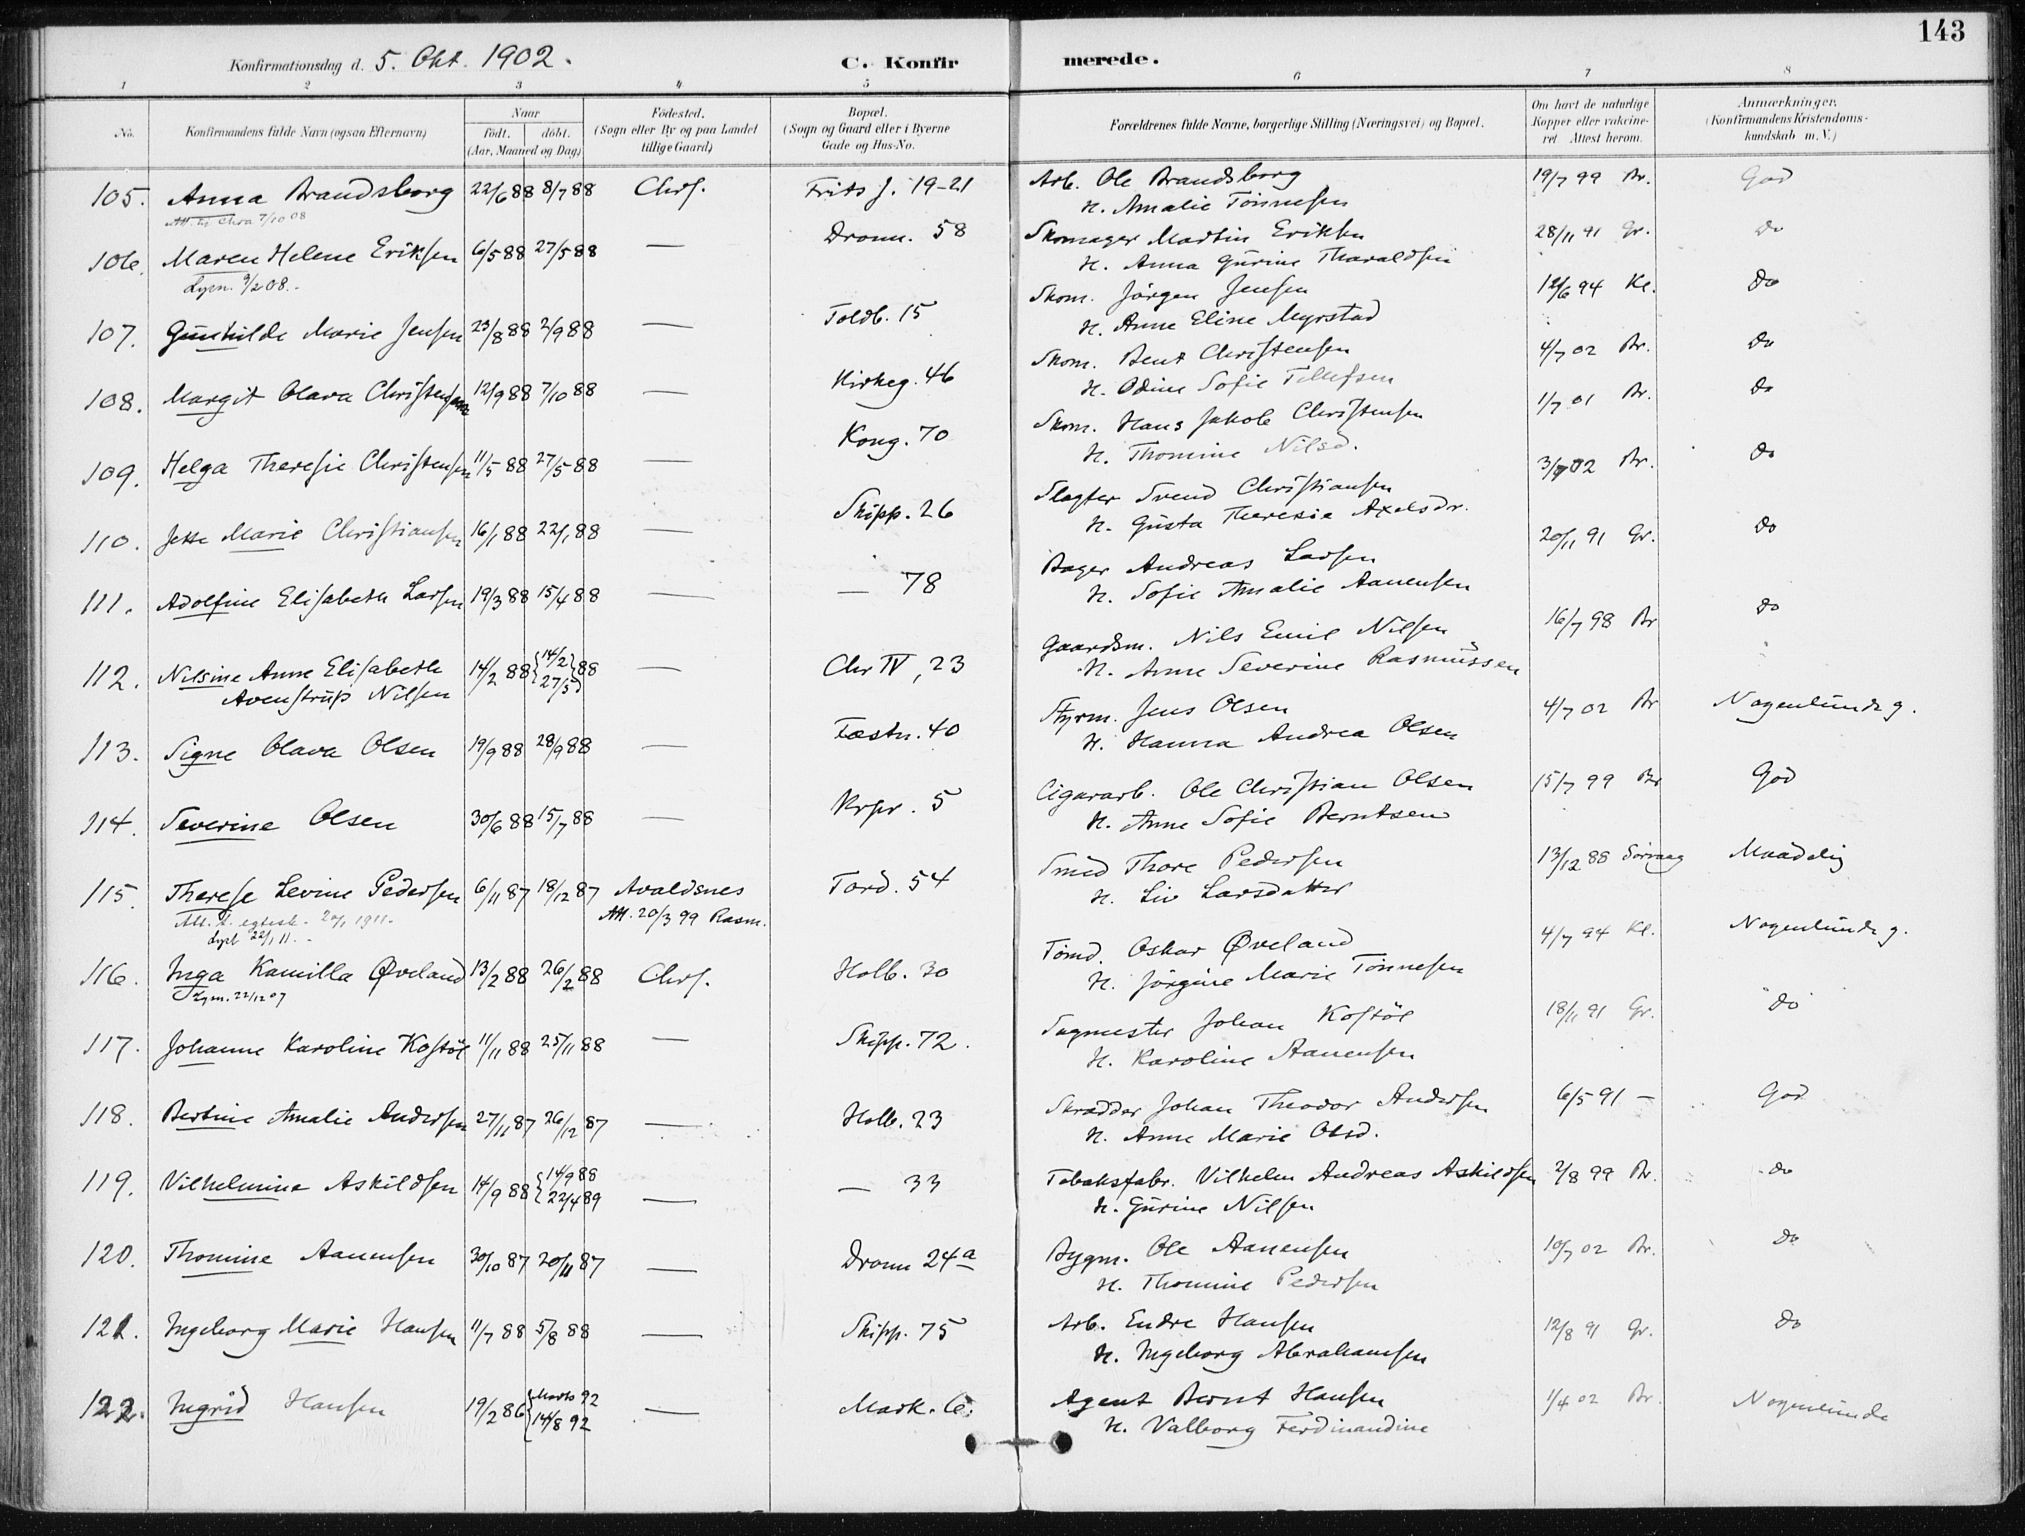 143
Konfirmationsdag d. 5. Okt. 1902.
C. Konfir merede.
1 2 3 4 5 6 7 8
No. Konfirmandens fulde Navn (ogsaa Efternavn) Naar Fødested. Bopæl. Forældrenes fulde Navne, borgerlige Stilling (Næringsvei) og Bopæl. Om havt de naturlige Anmærkninger.
født. døbt. (Sogn eller By og paa Landet (Sogn og Gaard eller i Byerne Kopper eller vakcine- (Konfirmandens Kristendoms-
(Aar, Maaned og Dag) tillige Gaard) Gade og Hus-No. ret Attest herom. kundskab m. V.)
105. Anna Brandsborg 22/6 88 8/7 88 Chrs. Frits J. 19-21 Arb. Ole Brandsborg 19/7 99 Br. God
H. Amalie Tönnesen
7/10 08
106. Maren Helene Eriksen 6/5 88 27/5 88 — Dronn. 58 Skomager Martin Eriksen 28/11 91 Gr. Do
H. Anna Gurine Tharaldsen
Lysn. 9/2 08.
107. Gunhilde Marie Jensen 23/8 88 2/9 88 — Toldb. 15 Skom. Jörgen Jensen 12/6 94 Kl. Do
H. Anne Eline Myrstad
108. Margit Olava Christensen 12/9 88 7/10 88 — Kirkeg. 46 Skom. Bent Christensen 4/7 02 Br. Do
H. Odine Sofie Tellefsen
109. Helga Theresie Christensen 11/5 88 27/5 88 — Kong. 70 Skom. Hans Jakob Christensen 1/7 01 Br. Do
H. Thomine Nilsd.
110. Jette Marie Christiansen 16/1 88 22/1 88 — Skipp. 26 Slagter Svend Christiansen 3/7 02 Br. Do
H. Gusta Theresia Axelsdr.
111. Adolfine Elisabeth Larsen 19/3 88 15/4 88 — — 78 Bager Andreas Larsen 20/11 91 Gr. Do
H. Sofie Amalie Aanensen
112. Nilsine Anne Elisabeth 14/2 88 {14/2 27/5} 88 — Chr IV, 23 Gaardsm. Nils Emil Nilsen 16/7 98 Br Do
Avenstrup Nilsen H. Anne Severine Rasmussen
113. Signe Olava Olsen 19/9 88 28/9 88 — Fæstn. 40 Styrm. Jens Olsen 4/7 02 Br Nogenlunde g.
H. Hanna Andrea Olsen
114. Severine Olsen 30/6 88 15/7 88 — Krpr. 5 Cigararb. Ole Christian Olsen 15/7 99 Br God
H. Anne Sofie Berntsen
115. Therese Levine Pedersen 6/11 87 18/12 87 Avaldsnes Tord. 54 Smed Thore Pedersen 13/12 88 Maadelig
Att. 20/3 99 Rasm. H. Liv Larsdatter
Att. t. egtesk. 20/1 1911.
Lyst 22/1 11.
116. Inga Kamilla Øveland 13/2 88 26/2 88 Chrs. Holb. 30 Tömd. Oskar Øveland 4/7 94 Kl. Nogenlunde g.
H. Jörgine Marie Tönnesen
Lysn. 22/12 07
117. Johanne Karoline Kostöl 11/11 88 25/11 88 — Skipp. 72. Sagmester Johan Kostöl 18/11 91 Gr. Do
H. Karoline Aanensen
118. Bertine Amalie Andersen 27/11 87 26/12 87 — Holb. 23 Skrædder Johan Theodor Andersen 6/5 91 — God
H. Anne Marie Olsd.
119. Vilhelmine Askildsen 14/9 88 {14/9 88 22/4 89 — — 33 Tobaksfabr. Vilhelm Andreas Askildsen 2/8 99 Br. Do
H. Gurine Nilsen
120. Thomine Aanensen 30/10 87 20/11 87 — Dronn 24a Bygm. Ole Aanensen 10/7 02 Br. Do
H. Thomine Pedersen
121. Ingeborg Marie Hansen 11/7 88 5/8 88 — Skipp. 75 Arb. Endre Hansen 12/8 91 Gr. Do
H. Ingeborg Abrahamsen
122. Ingrid Hansen 19/2 86 {Marts 92 14/8 92 — Mark. 6. Agent Bernt Hansen 1/4 02 Br. Nogenlunde
H. Valborg Ferdinandine